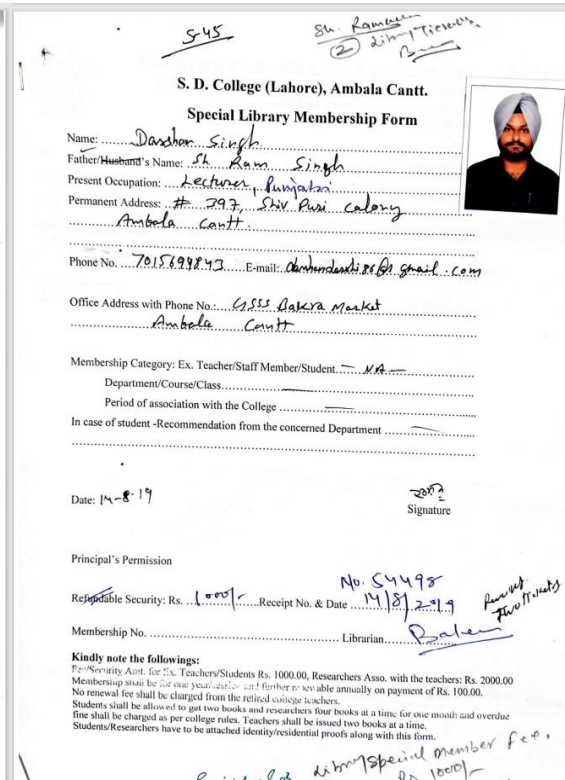 S-45
Sh. Raman
② Library Tickets
S. D. College (Lahore), Ambala Cantt.
Special Library Membership Form
Name: Darshan Singh
Father/Husband's Name: Sh. Ram Singh
Present Occupation: Lecturer, Punjabi
Permanent Address: # 397, Shiv Puri calony
Ambala Cantt.
Phone No. 7015699843 E-mail: @ gmail.com
Office Address with Phone No.: GSSS Bakra Market
Ambala Cantt
Membership Category: Ex. Teacher/Staff Member/Student — NA —
Department/Course/Class
Period of association with the College
In case of student -Recommendation from the concerned Department
Date: 14-8-19
Signature
Principal's Permission
No. 54498
Refundable Security: Rs. 1000/- Receipt No. & Date 14/8/2019
two tickets
Membership No. Librarian
Kindly note the followings:
Fee/Security Amt. for Ex. Teachers/Students Rs. 1000.00, Researchers Asso. with the teachers: Rs. 2000.00
Membership shall be for one year/session and further renewable annually on payment of Rs. 100.00.
No renewal fee shall be charged from the retired college teachers.
Students shall be allowed to get two books and researchers four books at a time for one month and overdue
fine shall be charged as per college rules. Teachers shall be issued two books at a time.
Students/Researchers have to be attached identity/residential proofs along with this form.
library special member fee.
Rs 1000/-